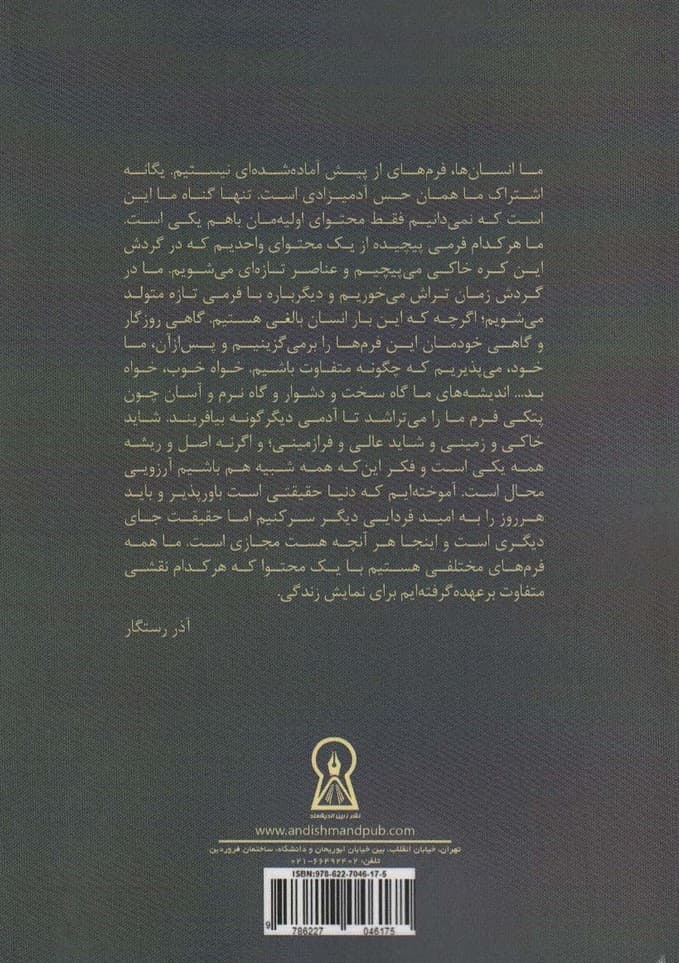 ما انسان‌ها، فرم‌های از پیش آماده‌شده‌ای نیستیم. یگانه
اشتراک ما همان حس آدمیزادی است. تنها گناه ما این
است که نمی‌دانیم فقط محتوای اولیه‌مان باهم یکی است.
ما هرکدام فرمی پیچیده از یک محتوای واحدیم که در گردش
این کره خاکی می‌پیچیم و عناصر تازه‌ای می‌شویم. ما در
گردش زمان تراش می‌خوریم و دیگرباره با فرمی تازه متولد
می‌شویم؛ اگرچه که این بار انسان بالغی هستیم. گاهی روزگار
و گاهی خودمان این فرم‌ها را برمی‌گزینیم و پس‌ازآن، ما
خود، می‌پذیریم که چگونه متفاوت باشیم. خواه خوب، خواه
بد... اندیشه‌های ما گاه سخت و دشوار و گاه نرم و آسان چون
پتکی فرم ما را می‌تراشد تا آدمی دیگرگونه بیافریند. شاید
خاکی و زمینی و شاید عالی و فرازمینی؛ و اگرنه اصل و ریشه
همه یکی است و فکر این‌که همه شبیه هم باشیم آرزویی
محال است. آموخته‌ایم که دنیا حقیقتی است باورپذیر و باید
هرروز را به امید فردایی دیگر سر کنیم اما حقیقت جای
دیگری است و اینجا هر آنچه هست مجازی است. ما همه
فرم‌های مختلفی هستیم با یک محتوا که هرکدام نقشی
متفاوت برعهده‌گرفته‌ایم برای نمایش زندگی.
آذر رستگار
نشر زرین اندیشمند
www.andishmandpub.com
تهران، خیابان انقلاب، بین خیابان ابوریحان و دانشگاه، ساختمان فروردین
تلفن: ۶۶۴۹۲۴۰۲-۰۲۱
ISBN:978-622-7046-17-5
9 786227 046175